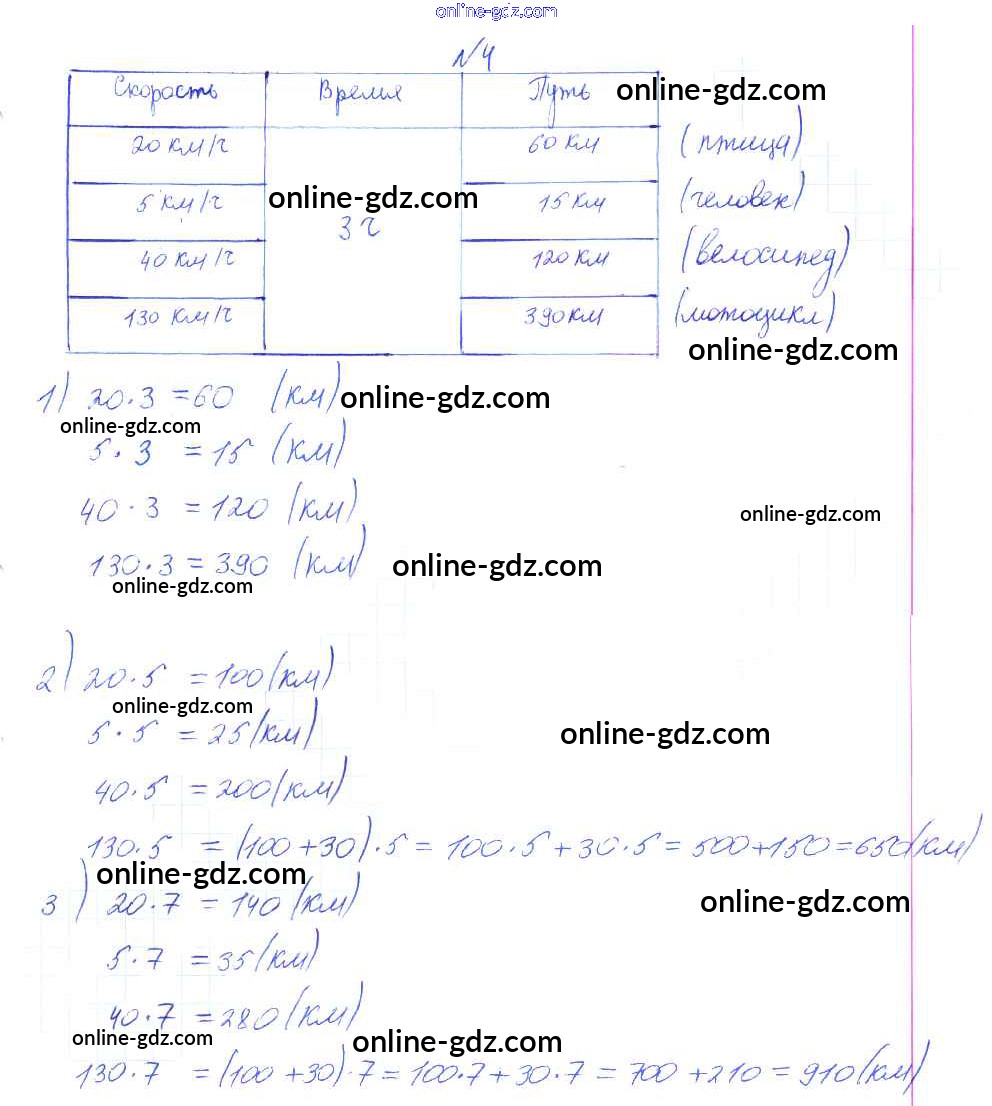 online-gdz.com
№4
Скорость Время Путь online-gdz.com
20 км/ч 60 км (птица)
online-gdz.com
5 км/ч 3 ч 15 км (человек)
40 км/ч 120 км (велосипед)
130 км/ч 390 км (мотоцикл)
online-gdz.com
1) 20·3 =60 (км) online-gdz.com
online-gdz.com
5·3 =15 (км)
40·3 =120 (км)
online-gdz.com
130·3=390 (км) online-gdz.com
online-gdz.com
2) 20·5 =100(км)
online-gdz.com
5·5 =25(км) online-gdz.com
40·5 =200(км)
130·5 =(100+30)·5=100·5+30·5=500+150=650(км)
online-gdz.com
3) 20·7 =140(км) online-gdz.com
5·7 =35(км)
40·7 =280(км)
online-gdz.com online-gdz.com
130·7 =(100+30)·7=100·7+30·7=700+210=910(км)